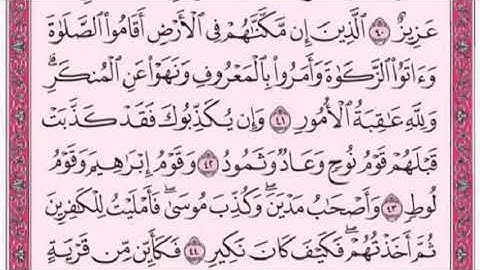 عَزِيزٌ ٤٠ ٱلَّذِينَ إِن مَّكَّنَّٰهُمْ فِى ٱلْأَرْضِ أَقَامُوا۟ ٱلصَّلَوٰةَ
وَءَاتَوُا۟ ٱلزَّكَوٰةَ وَأَمَرُوا۟ بِٱلْمَعْرُوفِ وَنَهَوْا۟ عَنِ ٱلْمُنكَرِ ۗ
وَلِلَّهِ عَٰقِبَةُ ٱلْأُمُورِ ٤١ وَإِن يُكَذِّبُوكَ فَقَدْ كَذَّبَتْ
قَبْلَهُمْ قَوْمُ نُوحٍ وَعَادٌ وَثَمُودُ ٤٢ وَقَوْمُ إِبْرَٰهِيمَ وَقَوْمُ
لُوطٍ ٤٣ وَأَصْحَٰبُ مَدْيَنَ ۖ وَكُذِّبَ مُوسَىٰ ۖ فَأَمْلَيْتُ لِلْكَٰفِرِينَ
ثُمَّ أَخَذْتُهُمْ ۖ فَكَيْفَ كَانَ نَكِيرِ ٤٤ فَكَأَيِّن مِّن قَرْيَةٍ